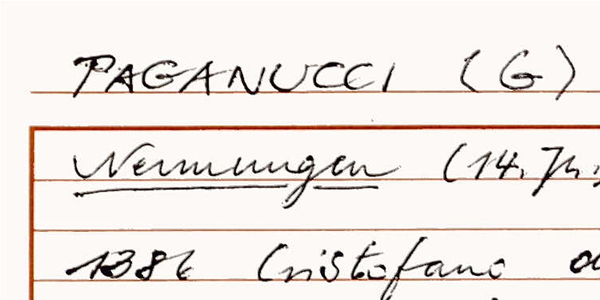 PAGANUCCI (G)
Nennungen (14. Jh.
1386 Cristofano